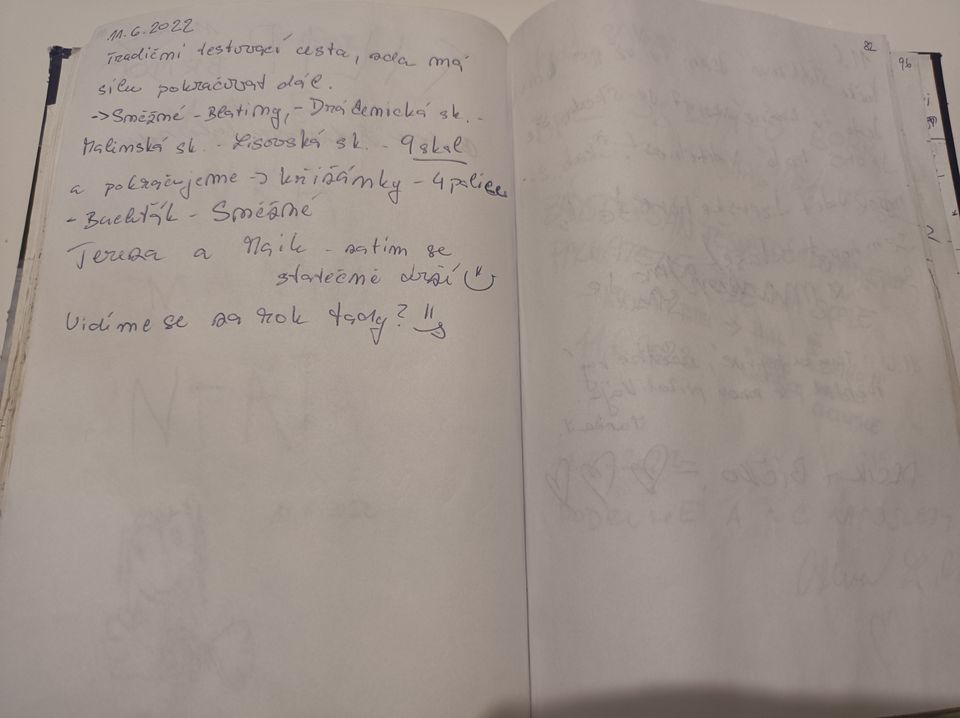 11.6.2022
Tradiční testovací cesta, zda má
sílu pokračovat dál.
-> Sněžné - Blatiny, - Dráteničká sk. -
Malínská sk. - Lisovská sk. - 9 skal
a pokračujeme -> Křižánky - 4 palice
- Buchťák - Sněžné
Tereza a Maik - zatím se
statečně drží
Vidíme se za rok tady?
82
96